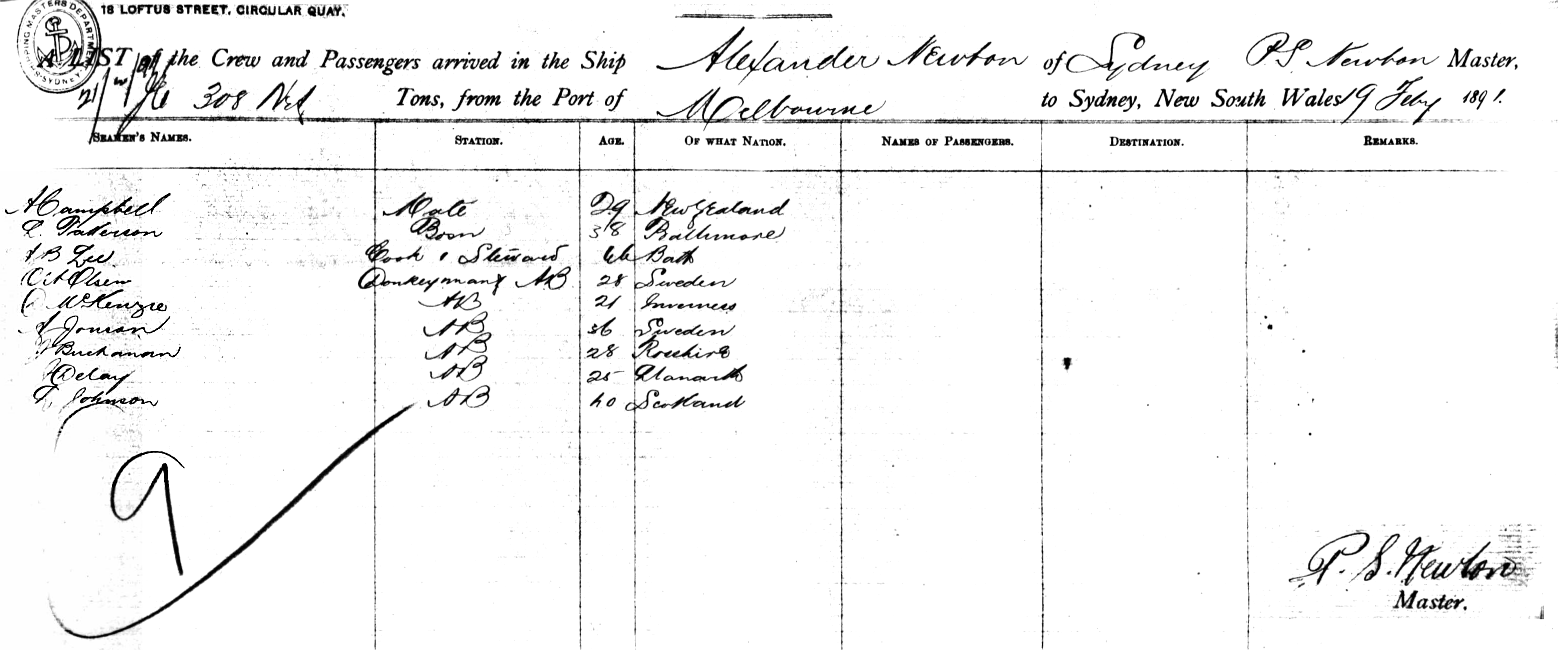 18 LOFTUS STREET, CIRCULAR QUAY.
SHIPPING MASTERS DEPARTMENT SYDNEY
A LIST of the Crew and Passengers arrived in the Ship Alexander Newton of Sydney P S Newton Master,
308 Net Tons, from the Port of Melbourne to Sydney, New South Wales 19 Feby 1891.
SEAMEN'S NAMES. STATION. AGE. OF WHAT NATION. NAMES OF PASSENGERS. DESTINATION. REMARKS.
A Campbell Mate 29 New Zealand
Patterson Bosn 38 Baltimore
B Lee Cook & Steward Bath
Olsen Donkeyman & AB 28 Sweden
McKenzie AB 21 Inverness
Jonson AB 36 Sweden
Buchanan AB 28 Rosshire
Delay AB 25
Johnson AB 40 Scotland
9
P. S. Newton
Master.